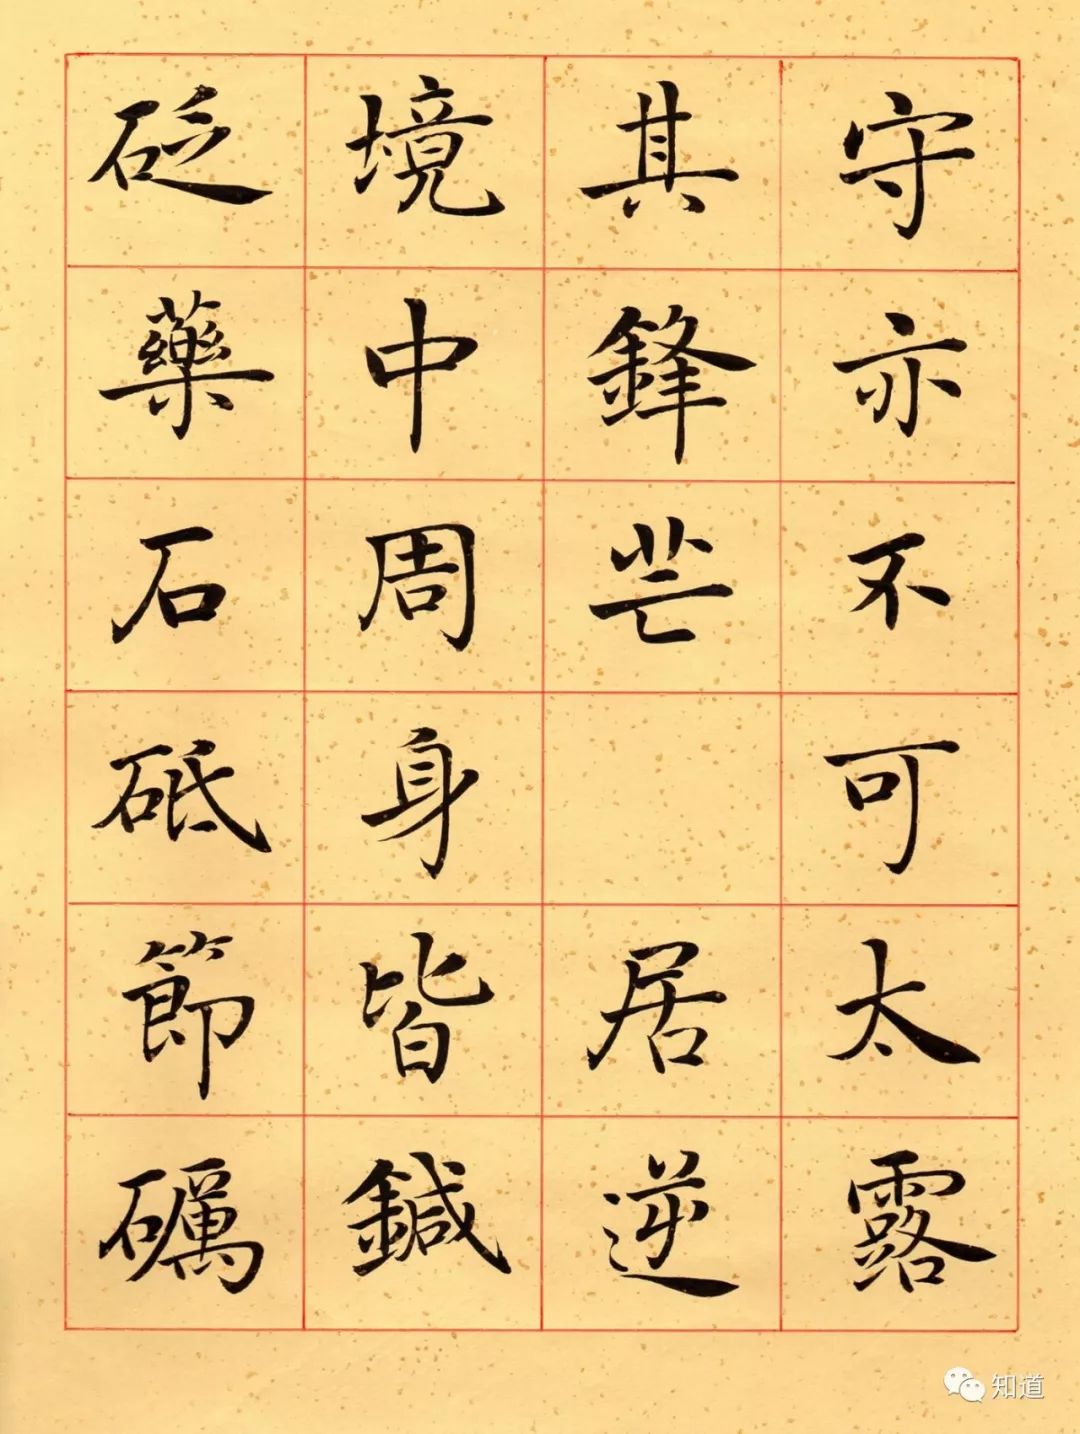 守亦不可太露
其鋒芒 居逆
境中周身皆鍼
砭藥石砥節礪
知道